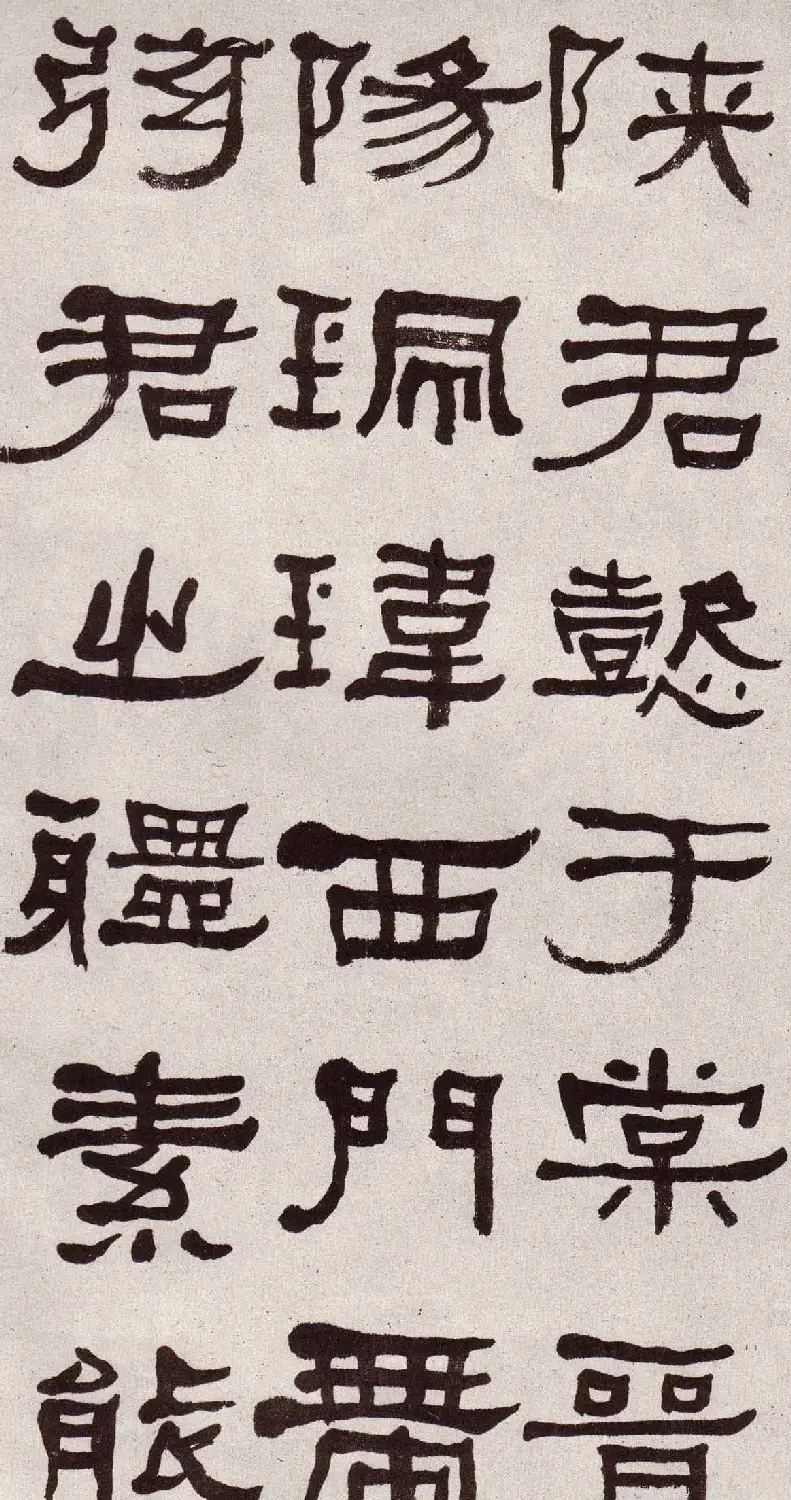 陝君懿于棠晉
陽珮瑋西門帶
弦君之軆素能